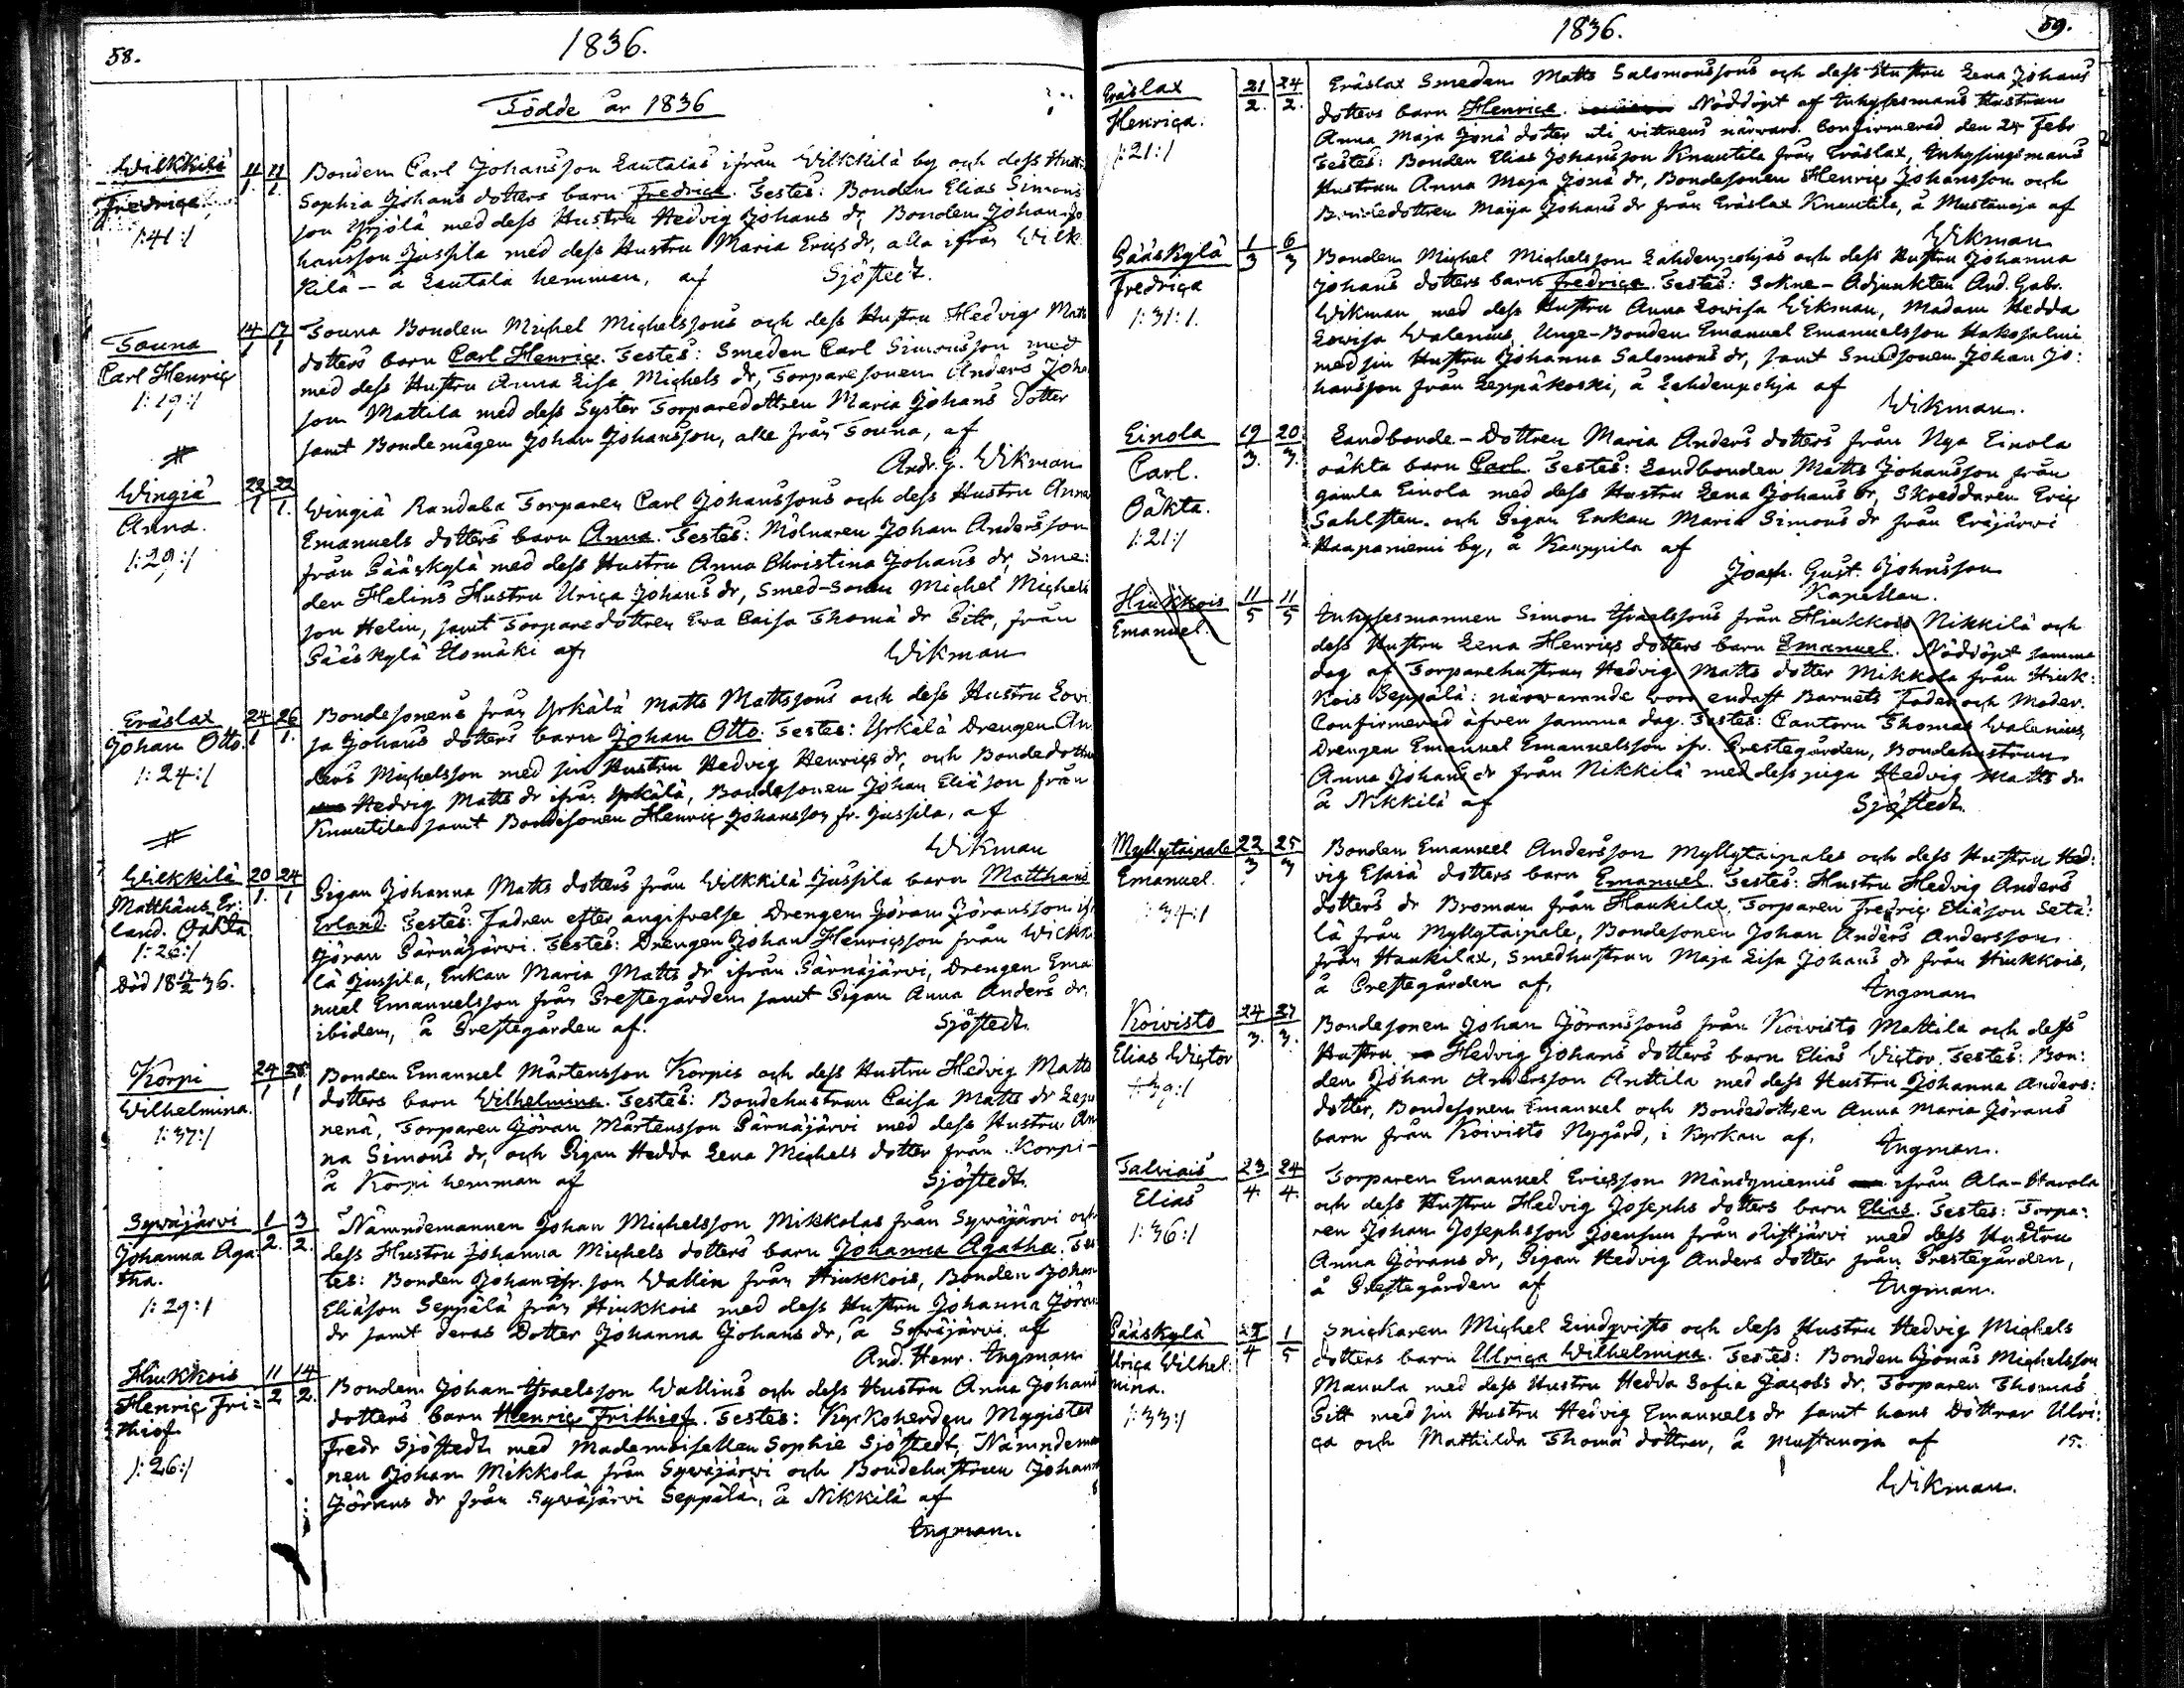 58.
1836.
Födde år 1836
Wilkkilä
Fredrica
/:41:/
11/1 11/1
Bonden Carl Johansson Lautalas ifrån Wilkkilä by och dess Hustru
Sophia Johans dotters barn Fredrica. Testes: Bonden Elias Simons
son Yrjölä med dess Hustru Hedvig Johans dr, Bonden Johan Jo
hansson Jussila med dess Hustru Maria Erics dr, alla ifrån Wilk
kilä - å Lautala hemman, af Sjöstedt.
Touna
Carl Henric
/:29:/
14/1 17/1
Touna Bonden Michel Michelssons och dess Hustru Hedvig Matts
dotters barn Carl Henric. Testes: Smeden Carl Simonsson med
med dess Hustru Anna Lisa Michels dr, Torparesonen Anders Joha
son Mattila med dess Syster Torparedottren Maria Johans dotter
samt Bondemågen Johan Johansson, alla från Touna, af
And. G. Wikman
Wingiä
Anna.
/:29:/
22/1 22/1.
Wingiä Randala Torparen Carl Johanssons och dess Hustru Anna
Emanuels dotters barn Anna. Testes: Mölnaren Johan Andersson
från Pääskylä med dess Hustru Anna Christina Johans dr, Sme:
den Helins Hustru Ulrica Johans dr, Smed-Sonen Michel Michels
son Helin, samt Torparedottren Eva Caisa Thomä dr Pitt, från
Pääskylä Elomäki af Wikman
Eräslax
Johan Otto.
/:24:/
24/1 26/1.
Bondesonens från Yrkälä Matts Mattssons och dess Hustru Lovi
sa Johans dotters barn Johan Otto. Testes: Yrkälä Drengen An
ders Michelsson med sin Hustru Hedvig Henrics dr, och Bondedottren
Hedvig Matts dr ifrån Yrkälä, Bondesonen Johan Eliäson från
Knuutila samt Bondesonen Henric Johansson fr. Jussila, af
Wikman
Wilkkilä
Matthäus Er:
land. Oäkta
/:26:/
Död 18 17/2 36.
20/1. 24/1
Pigan Johanna Matts dotters från Wilkkilä Jussila barn Matthäus
Erland. Testes: Fadren efter angifvelse Drengen Göran Göransson ifr
Göran Pärnäjärvi. Testes: Drengen Johan Henricsson från Wilkki
lä Jussila, Enkan Maria Matts dr ifrån Pärnäjärvi, Drengen Ema
nuel Emanuelsson från Prestegården samt Pigan Anna Anders dr
ibidem, å Prestegården af. Sjöstedt.
Korpi
Wilhelmina.
/:37:/
24/1 28/1
Bonden Emanuel Mårtensson Korpis och dess Hustru Hedvig Matts
dotters barn Wilhelmina. Testes: Bondehustrun Caisa Matts dr Lep
nenä, Torparen Göran Mårtensson Pärnäjärvi med dess Hustru An
na Simons dr, och Pigan Hedda Lena Michels dotter från Korpi -
å Korpi hemman af Sjöstedt.
Sywäjärvi
Johanna Aga:
tha.
/:29:/
1/2. 3/2.
Nämndemannen Johan Michelsson Mikkolas från Sywäjärvi och
dess Hustru Johanna Michels dotters barn Johanna Agatha. Tes
tes: Bonden Johan Isr. son Wallin från Hiukkois, Bonden Johan
Eliäson Seppälä från Hiukkois med dess Hustru Johanna Göran
dr samt deras Dotter Johanna Johans dr, å Sywäjärvi af
And. Henr. Ingman
Hiukkois
Henric Fri=
thiof
/:26:/
11/2 14/2.
Bonden Johan Israelsson Wallins och dess Hustru Anna Johans
dotters barn Henric Frithiof. Testes: Kyrkoherden Magister
Fredr Sjöstedt med Mademoisellen Sophie Sjöstedt, Nämndeman
nen Johan Mikkola från Sywäjärvi och Bondehustrun Johanna
Görans dr från Sywäjärvi Seppälä, å Nikkilä af
Ingman.
1836.
59.
Eräslax
Henrica.
/:21:/
21/2. 24/2.
Eräslax Smeden Matts Salomonssons och dess Hustru Lena Johans
dotters barn Henrica. Nöddöpt af Inhysesmans Hustrun
Anna Maja Jonä dotter uti vittnens närvaro. Confirmerad den 24 Febr
Testes: Bonden Elias Johansson Knuutila från Eräslax, Inhysingsmans
Hustrun Anna Maja Jonä dr, Bondesonen Henric Johansson och
Bondedottren Maija Johans dr från Eräslax Knuutila, å Mustanoja af
Wikman
Pääskylä
Fredrica
/:31:/.
1/3 6/3
Bonden Michel Michelsson Lahdenpohjas och dess Hustru Johanna
Johans dotters barn Fredrica. Testes: Sokne-Adjunkten And. Gabr.
Wikman med dess Hustru Anna Lowisa Wikman, Madam Hedda
Lowisa Walenius, Unge-Bonden Emanuel Emanuelsson Hakosalmi
med sin Hustru Johanna Salomons dr, samt Smedsonen Johan Jo:
hansson från Leppäkoski, å Lahdenpohja af
Wikman.
Einola
Carl.
Oäkta.
/:21:/
19/3. 20/3.
Landbonde-Dottren Maria Anders dotters från Nya Einola
oäkta barn Carl. Testes: Landbonden Matts Johansson från
gamla Einola med dess Hustru Lena Johans dr, Skreddaren Eric
Sahlsten. och Pigan Enkan Maria Simons dr från Eräjärvi
Haapaniemi by, å Kauppila af
Joach. Gust. Johnsson
Kapellan.
Hiukkois
Emanuel.
11/5 11/5
Inhysesmannen Simon Israelssons från Hiukkois Nikkilä och
dess Hustru Lena Henrics dotters barn Emanuel. Nöddöpt samma
dag af Torparehustrun Hedvig Matts dotter Mikkola från Hiuk:
kois Seppälä: närwarande woro endast Barnets Fader och Moder.
Confirmerad äfven samma dag. Testes: Cantorn Thomas Walenius,
Drengen Emanuel Emanuelsson ifr. Prestegården, Bondehustrun
Anna Johans dr från Nikkilä med dess piga Hedvig Matts dr
å Nikkilä af Sjöstedt.
Myllytaipale
Emanuel.
/:34:/
22/3 25/3
Bonden Emanuel Andersson Myllytaipales och dess Hustru Hed:
vig Esaiä dotters barn Emanuel. Testes: Hustru Hedvig Anders
dotters dr Broman från Haukilax, Torparen Fredric Eliäson Setä:
lä från Myllytaipale, Bondesonen Johan Anders Andersson
från Haukilax, Smedhustrun Maja Lisa Johans dr från Hiukkois,
å Prestegården af, Ingman
Koivisto
Elias Wictor
/:39:/
24/3. 27/3.
Bondesonen Johan Göranssons från Koivisto Mattila och dess
Hustru Hedvig Johans dotters barn Elias Wictor. Testes: Bon:
den Johan Andersson Anttila med dess Hustru Johanna Anders:
dotter, Bondesonen Emanuel och Bondedottren Anna Maria Görans
barn från Koivisto Nygård, i Kyrkan af. Ingman.
Talviais
Elias
/:36:/
23/4. 24/4.
Torparen Emanuel Ericsson Mändyniemis ifrån Ala-Harola
och dess Hustru Hedvig Josephs dotters barn Elias. Testes: Torpa:
ren Johan Josephsson Joensuu från Ristjärvi med dess Hustru
Anna Görans dr, Pigan Hedvig Anders dotter från Prestegården,
å Prestegården af Ingman.
Pääskylä
Ulrica Wilhel:
mina.
/:33:/
1/5
Snickaren Michel Lindqvists och dess Hustru Hedvig Michels
dotters barn Ulrica Wilhelmina. Testes: Bonden Jonas Michelsson
Manula med dess Hustru Hedda Sofia Jacobs dr, Torparen Thomas
Pitt med sin Hustru Hedvig Emanuels dr samt hans Döttrar Ulri:
ca och Mathilda Thomä döttrar, å Mustanoja af 15.
Wikman.